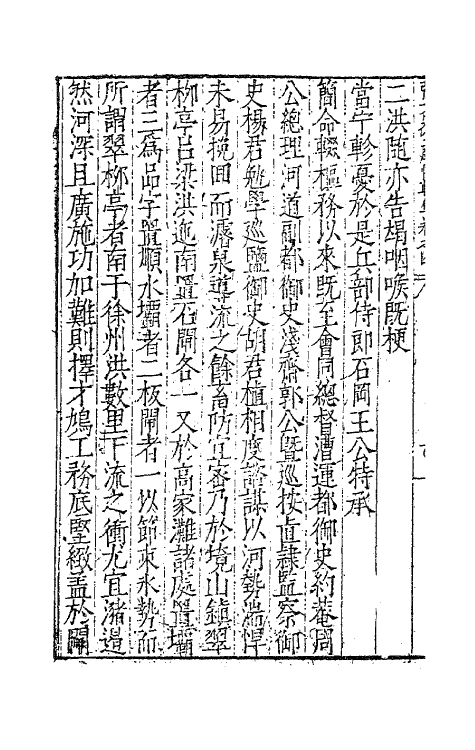 二洪随亦告竭咽喉既梗
當宁軫憂於是兵部侍郎石岡王公特承
簡命輟樞務以來既至會同總督漕運都御史約菴周
公總理河道副都御史淺齋郭公暨巡按直隸監察御
史楊君勉學巡鹽御史胡君植相度諮謀以河勢湍悍
未易挽回而濬泉導流之餘畜防宜審乃於境山鎮翠
柳亭呂梁洪迤南置石閘各一又於高家灘諸處置壩
者三為品字置順水壩者二板閘者一以節束水勢而
所謂翠柳亭者南于徐州洪數里下流之衝尤宜瀦遏
然河深且廣施功加難則擇才鳩工務底堅緻盖於閘